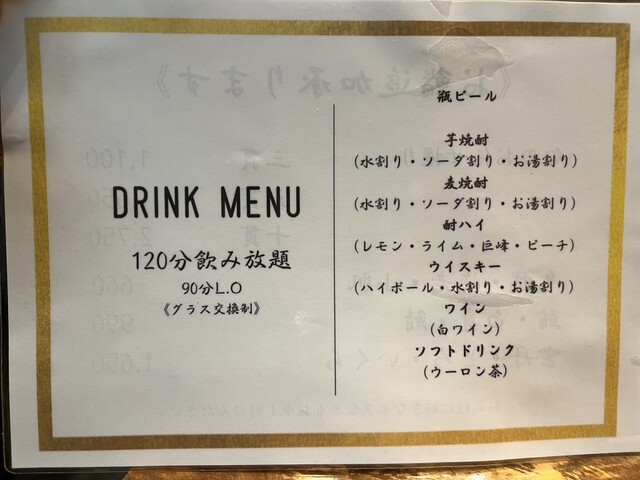 DRINK MENU
120分飲み放題
90分L.O
《グラス交換制》
瓶ビール
芋焼酎
(水割り・ソーダ割り・お湯割り)
麦焼酎
(水割り・ソーダ割り・お湯割り)
酎ハイ
(レモン・ライム・巨峰・ピーチ)
ウイスキー
(ハイボール・水割り・お湯割り)
ワイン
(白ワイン)
ソフトドリンク
(ウーロン茶)